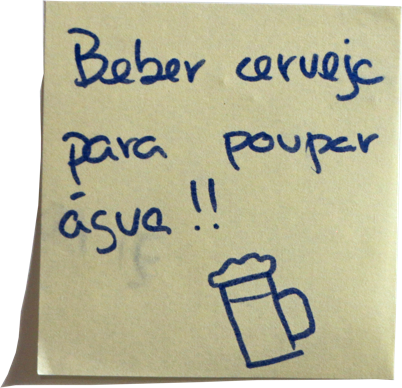 Beber cerveja
para poupar
água!!